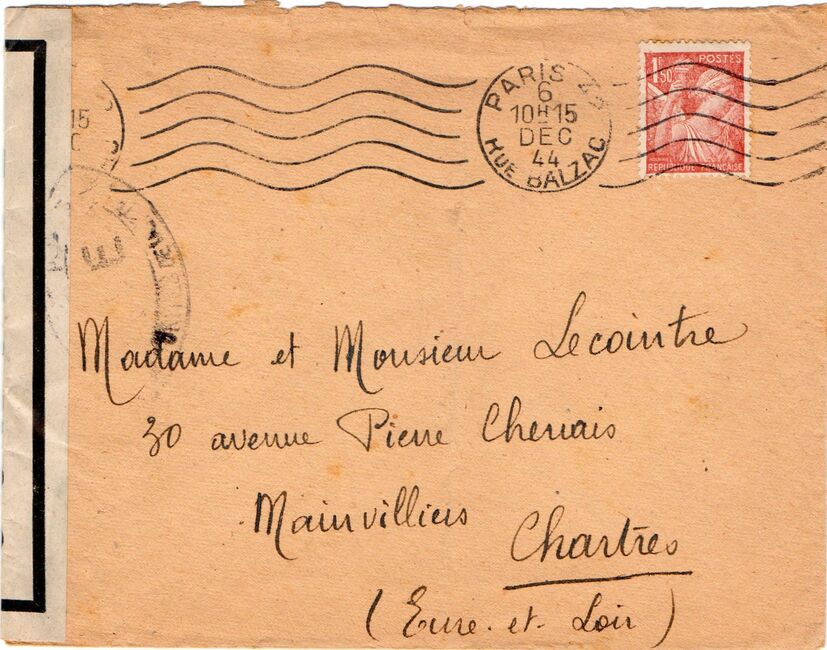 1F50
POSTES
RÉPUBLIQUE FRANÇAISE
PARIS
6
10H15
DEC
44
RUE BALZAC
15
E
Madame et Monsieur Lecointre
30 avenue Pierre Chenais
Mainvilliers
Chartres
(Eure-et-Loir)